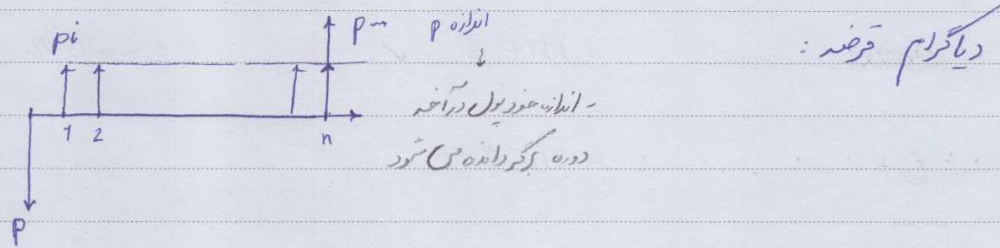 دیاگرام قرضه :
اندازه P
P
Pi
- اندازه خود پول در آخر
دوره برگردانده می شود
1 2 n
P